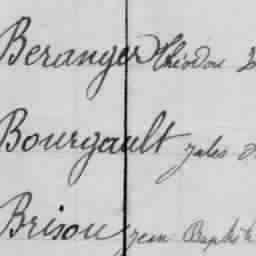 Beranger Théodore
Bourgault Jules
Brisou Jean Baptiste